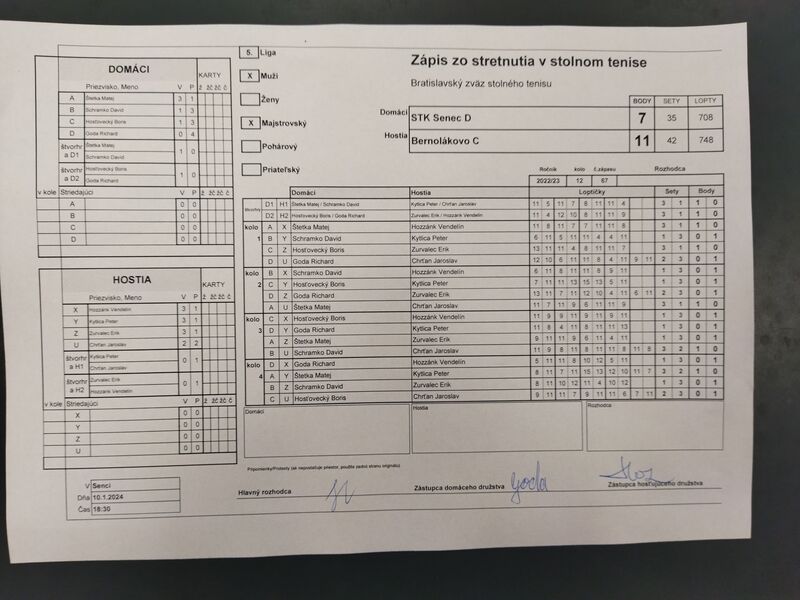 5. Liga
X Muži
Ženy
X Majstrovský
Pohárový
Priateľský
Zápis zo stretnutia v stolnom tenise
Bratislavský zväz stolného tenisu
BODY SETY LOPTY
Domáci STK Senec D 7 35 708
Hostia Bernolákovo C 11 42 748
Ročník kolo č.zápasu Rozhodca
2022/23 12 67
DOMÁCI
KARTY
Priezvisko, Meno V P ž žč žč č
A Štetka Matej 3 1
B Schramko David 1 3
C Hosťovecký Boris 1 3
D Goda Richard 0 4
štvorhra D1 Štetka Matej 1 0
Schramko David
štvorhra D2 Hosťovecký Boris 1 0
Goda Richard
v kole Striedajúci V P ž žč žč č
A 0 0
B 0 0
C 0 0
D 0 0
HOSTIA
KARTY
Priezvisko, Meno V P ž žč žč č
X Hozzánk Vendelín 3 1
Y Kytlica Peter 3 1
Z Zurvalec Erik 3 1
U Chrťan Jaroslav 2 2
štvorhra H1 Kytlica Peter 0 1
Chrťan Jaroslav
štvorhra H2 Zurvalec Erik 0 1
Hozzánk Vendelín
v kole Striedajúci V P ž žč žč č
X 0 0
Y 0 0
Z 0 0
U 0 0
Domáci Hostia Loptičky Sety Body
D1 H1 Štetka Matej / Schramko David Kytlica Peter / Chrťan Jaroslav 11 5 11 7 8 11 11 4 3 1 1 0
D2 H2 Hosťovecký Boris / Goda Richard Zurvalec Erik / Hozzánk Vendelín 11 4 12 10 8 11 11 9 3 1 1 0
kolo 1 A X Štetka Matej Hozzánk Vendelín 11 8 11 7 7 11 11 8 3 1 1 0
B Y Schramko David Kytlica Peter 6 11 5 11 11 4 4 11 1 3 0 1
C Z Hosťovecký Boris Zurvalec Erik 13 11 11 4 8 11 11 7 3 1 1 0
D U Goda Richard Chrťan Jaroslav 12 10 6 11 11 8 4 11 9 11 2 3 0 1
kolo 2 B X Schramko David Hozzánk Vendelín 6 11 8 11 11 8 9 11 1 3 0 1
C Y Hosťovecký Boris Kytlica Peter 7 11 11 13 15 13 5 11 1 3 0 1
D Z Goda Richard Zurvalec Erik 13 11 7 11 12 10 4 11 6 11 2 3 0 1
A U Štetka Matej Chrťan Jaroslav 11 7 11 9 6 11 11 9 3 1 1 0
kolo 3 C X Hosťovecký Boris Hozzánk Vendelín 11 9 9 11 9 11 9 11 1 3 0 1
D Y Goda Richard Kytlica Peter 11 8 4 11 8 11 11 13 1 3 0 1
A Z Štetka Matej Zurvalec Erik 9 11 11 9 11 6 11 4 3 1 1 0
B U Schramko David Chrťan Jaroslav 11 9 8 11 8 11 11 8 11 8 3 2 1 0
kolo 4 D X Goda Richard Hozzánk Vendelín 5 11 11 8 10 12 5 11 1 3 0 1
A Y Štetka Matej Kytlica Peter 8 11 7 11 15 13 12 10 11 7 2 3 0 1
B Z Schramko David Zurvalec Erik 8 11 10 12 11 4 10 12 1 3 0 1
C U Hosťovecký Boris Chrťan Jaroslav 9 11 11 7 9 11 11 6 7 11 2 3 0 1
Domáci Hostia Rozhodca
Pripomienky/Protesty (ak nepostačuje priestor, použite zadnú stranu originálu)
V Senci
Dňa 10.1.2024
Čas 18:30
Hlavný rozhodca
Zástupca domáceho družstva Goda
Zástupca hosťujúceho družstva